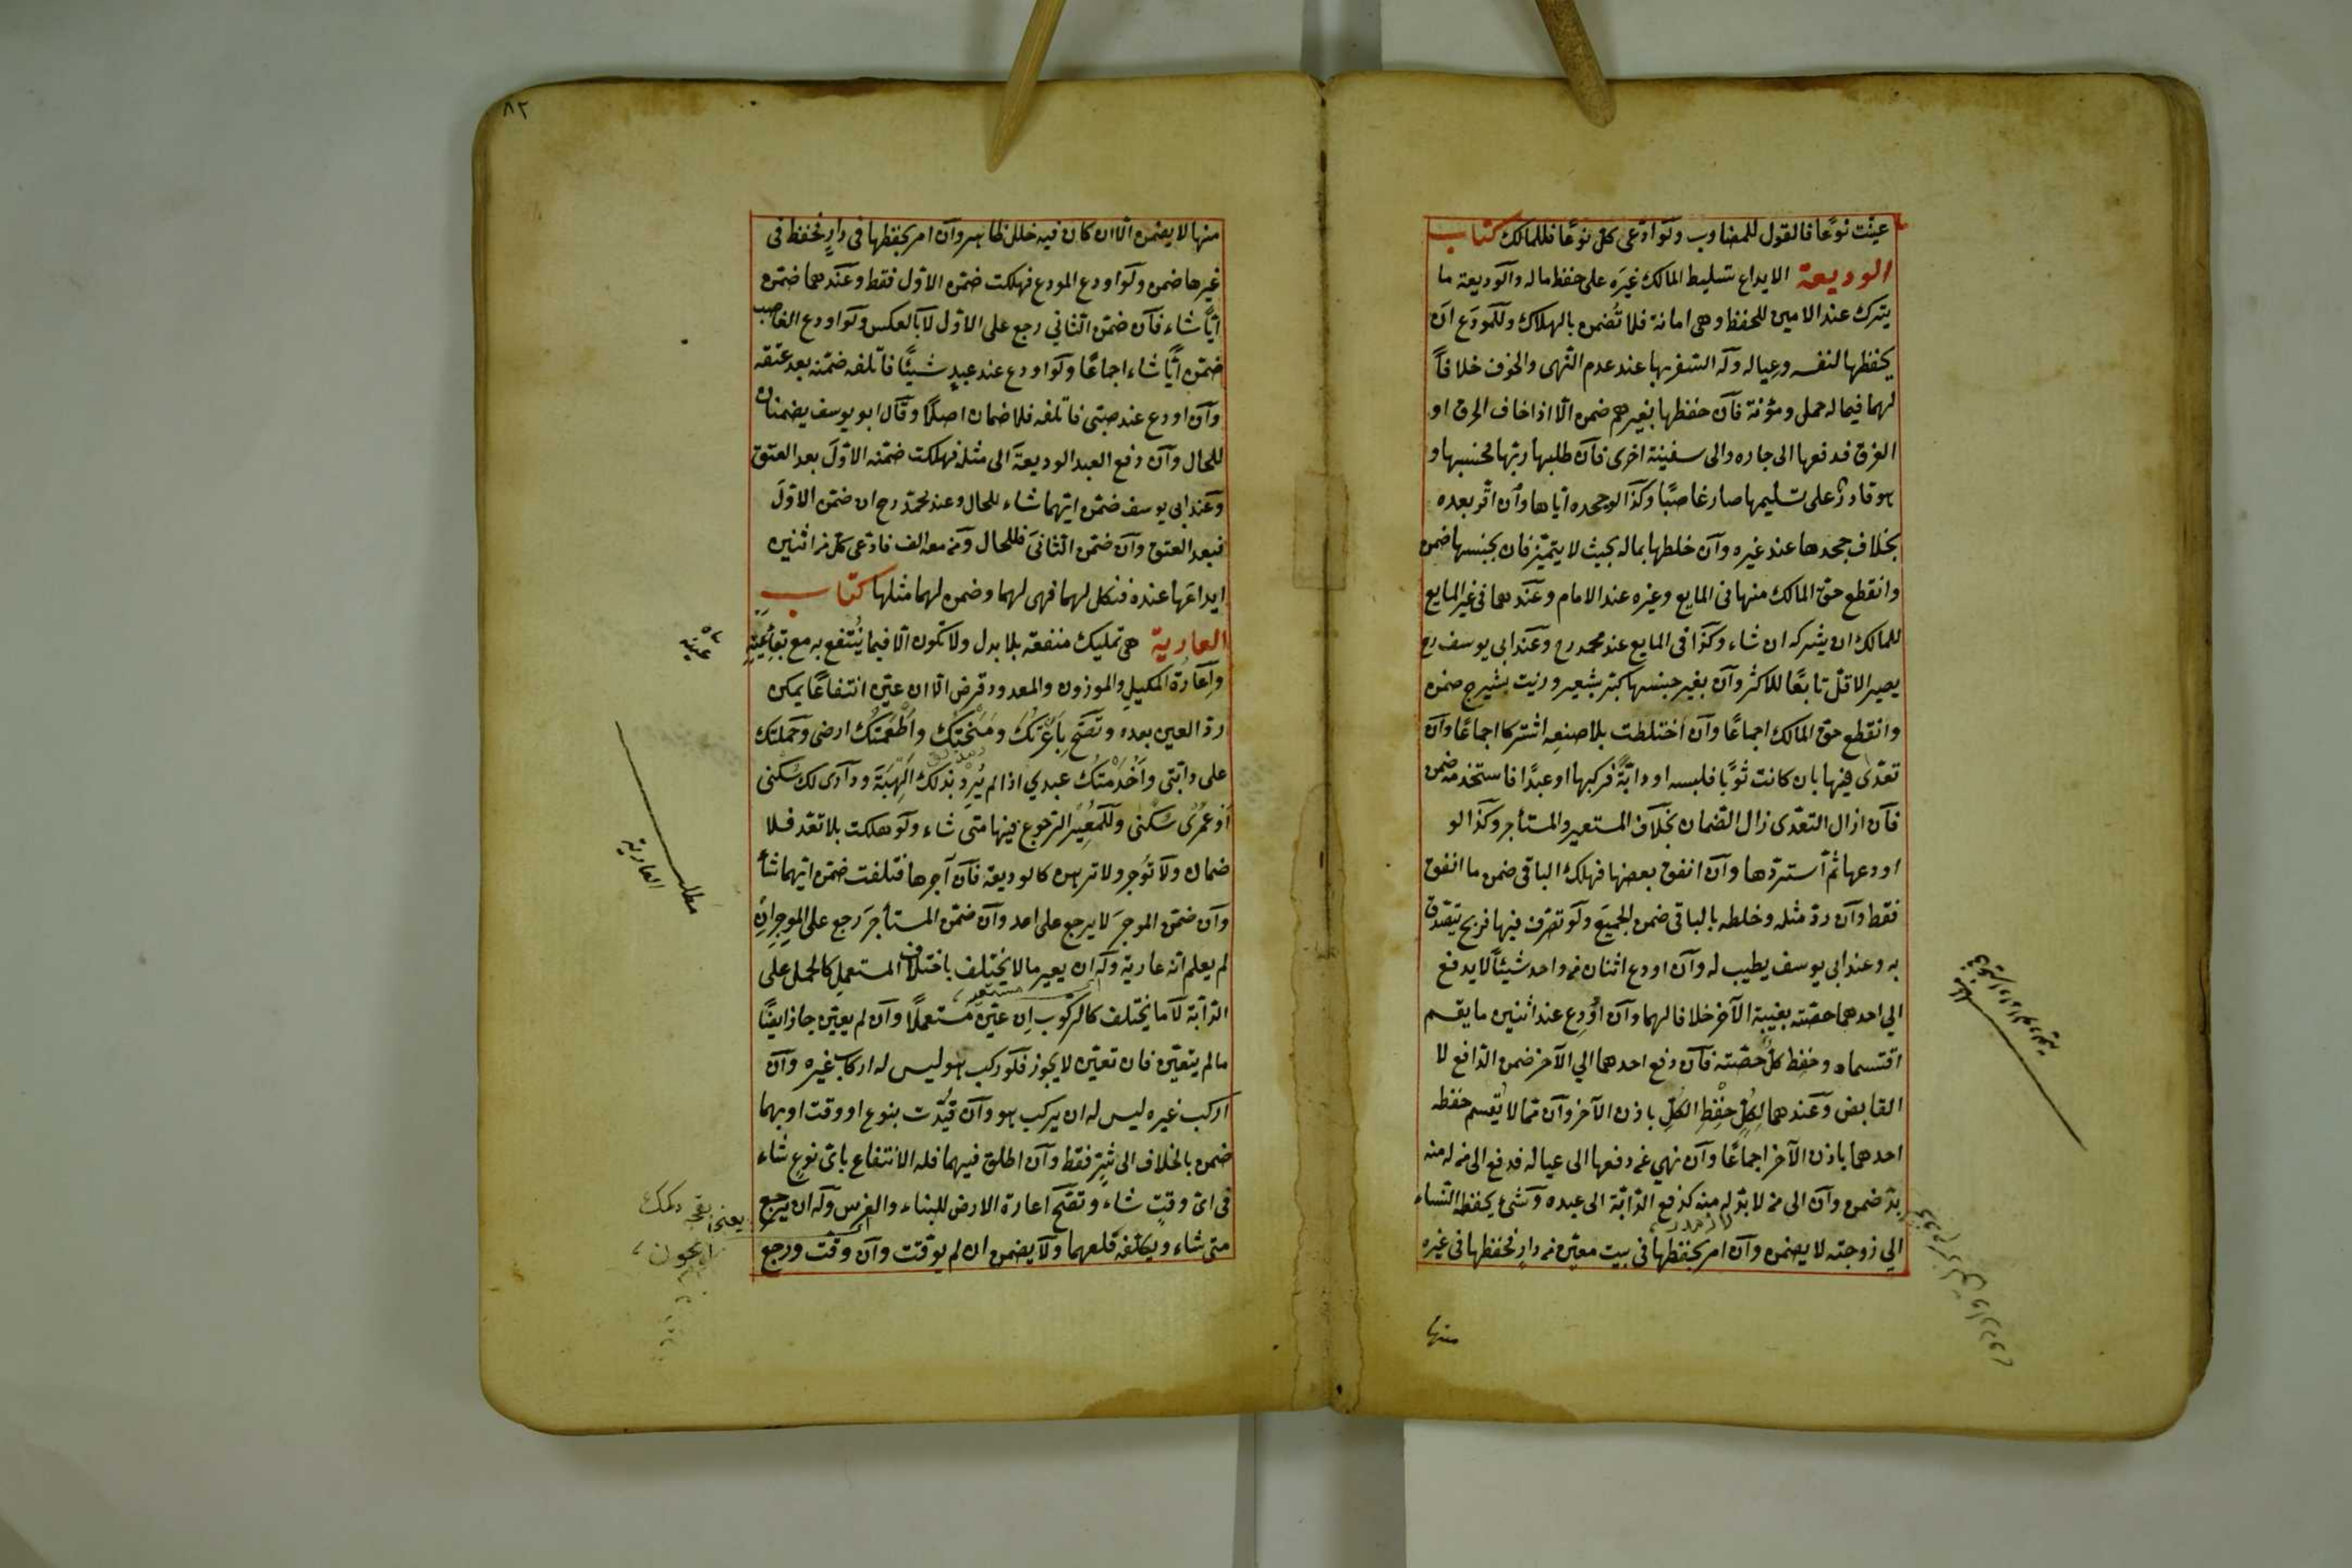 عينت نوعًا فالقول للمضارب ولو ادعى كل نوعًا فللمالك كتاب
الوديعة الايداع تسليط المالك غيره على حفظ ماله والوديعة ما
يترك عند الامين للحفظ وهى امانة فلا تُضمن بالهلاك وللمودَع ان
يحفظها لنفسه وعياله وله السفر بها عند عدم النهى والخوف خلافاً
لهما فيما له حمل ومؤنة فان حفظها بغيرهم ضمن الّا اذا خاف الحرق او
الغرق فدفعها الى جاره والى سفينة اخرى فان طلبها ربّها فحبسها و
هو قادرٌ على تسليمها صار غاصبًا وكذا لو جحده اياها وان اقرّ بعده
بخلاف جحدها عند غيره وان خلطها بماله بحيث لا يتميّز فان بجنسها ضمن
وانقطع حق المالك منها فى المايع وغيره عند الامام وعندهما فى غير المايع
للمالك ان يشركه ان شاء وكذا فى المايع عند محمد رح وعند ابى يوسف رح
يصير الاقل تابعًا للاكثر وان بغير جنسها كبرّ بشعير وزيت بشيرج ضمن
وانقطع حق المالك اجماعًا وان اختلطت بلا صنعه اشتركا اجماعًا وان
تعدّى فيها بان كانت ثوبًا فلبسه او دابّةً فركبها او عبدًا فاستخدمه ضمن
فان ازال التعدّى زال الضمان بخلاف المستعير والمستأجر وكذا لو
اودعها ثم استردّها وان انفق بعضها فهلك الباقى ضمن ما انفق
فقط وان ردّ مثله وخلطه بالباقى ضمن الجميع ولو تصرّف فيها فربح يتصدّق
به وعند ابى يوسف يطيب له وان اودع اثنان من واحد شيئًا لا يدفع
الى احدهما حصّته بغيبة الآخر خلافا لهما وان اُودِع عند اثنين ما يقسم
اقتسماه وحفظ كلٌّ حصّته فان دفع احدهما الى الآخر ضمن الدّافع لا
القابض وعندهما لِكلٍّ حِفْظ الكلِّ باذن الآخر وان ممّا لا يُقسم حفظه
احدهما باذن الآخر اجماعًا وان نهى عن دفعها الى عياله فدفع الى من له منه
بدّ ضمن وان الى من لا بدّ له منه كدفع الدّابّة الى عبده وشئ يحفظه النّساء
الى زوجته لا يضمن وان امر بحفظها فى بيت معيّن من دارٍ فحفظها فى غيره
منها
٨٢
منها لا يضمن الّا ان كان فيه خلل ظاهر وان امر بحفظها فى دارٍ فحفظ فى
غيرها ضمن ولو اودع المودع فهلكت ضمّن الاوّل فقط وعندهما ضمّن
ايًّا شاء فان ضمّن الثّانى رجع على الاوّل لا بالعكس ولو اودع الغاصب
ضمّن ايًّا شاء اجماعًا ولو اودع عند عبدٍ شيئًا فاتلفه ضمّنه بعد عتقه
وان اودع عند صبىّ فاتلفه فلا ضمان اصلًا وقال ابو يوسف يضمنان
للحال وان دفع العبد الوديعة الى مثله فهلكت ضمّنه الاوّلَ بعد العتق
وعند ابى يوسف ضمّن ايّهما شاء للحال وعند محمّد رح ان ضمّن الاوّلَ
فبعد العتق وان ضمّن الثّانىَ فللحال ومن معه الف فادّعى كلّ من اثنين
ايداعَها عنده فنكل لهما فهى لهما وضمن لهما مثلها كتاب
العارية هى تمليك منفعة بلا بدل ولا تكون الّا فيما يُنتفع به مع بقاء عَيْنِهِ
واِعَارة المكيلِ والموزون والمعدود قرض الّا ان عيّن انتفاعًا يمكن
ردّ العين بعده وتصحّ بِأعَرْتُكَ ومَنَحْتُكَ واَطْعَمْتُكَ ارضى وحملتك
على دابّتى واَخْدَمْتُكَ عبدي اذا لم يُرِدْ بذلك اَلْهِبَةَ ودارى لك سُكنى
اَوْ عُمْرٰى سُكْنٰى وللمُعِيْر الرّجوع فيها متى شاء ولو هلكت بلا تعدّ فلا
ضمان ولا تُؤجر ولا ترهن كالوديعة فان آجرها فتلفت ضمّن ايّهما شاء
وان ضمّن الموجرَ لا يرجع على احد وان ضمّن المستأجرَ رجع على الموجِرِ ان
لم يعلم انّه عارية وله ان يعير ما لا يختلف باختلاف المستعمِلِ كالحمل على
الدّابّة لا ما يختلف كالرّكوب اِن عيّن مستعملًا وان لم يعيّن جاز ايضًا
ما لم يتعيّن فان تعيّن لا يجوز فلو ركب هو ليس له اركاب غيره وان
اركب غيره ليس له ان يركب هو وان قُيّدت بنوع او وقت او بهما
ضمن بالخلاف الى شرّ فقط وان اطلق فيهما فله الانتفاع باىّ نوعٍ شاء
فى اىّ وقتٍ شاء وتصحّ اعارة الارض للبناء والغرس وله ان يرجع
متى شاء ويكلّفه قلعهما ولا يضمن ان لم يوقّت وان وقّت ورجع
عينه
مطلب
العارية